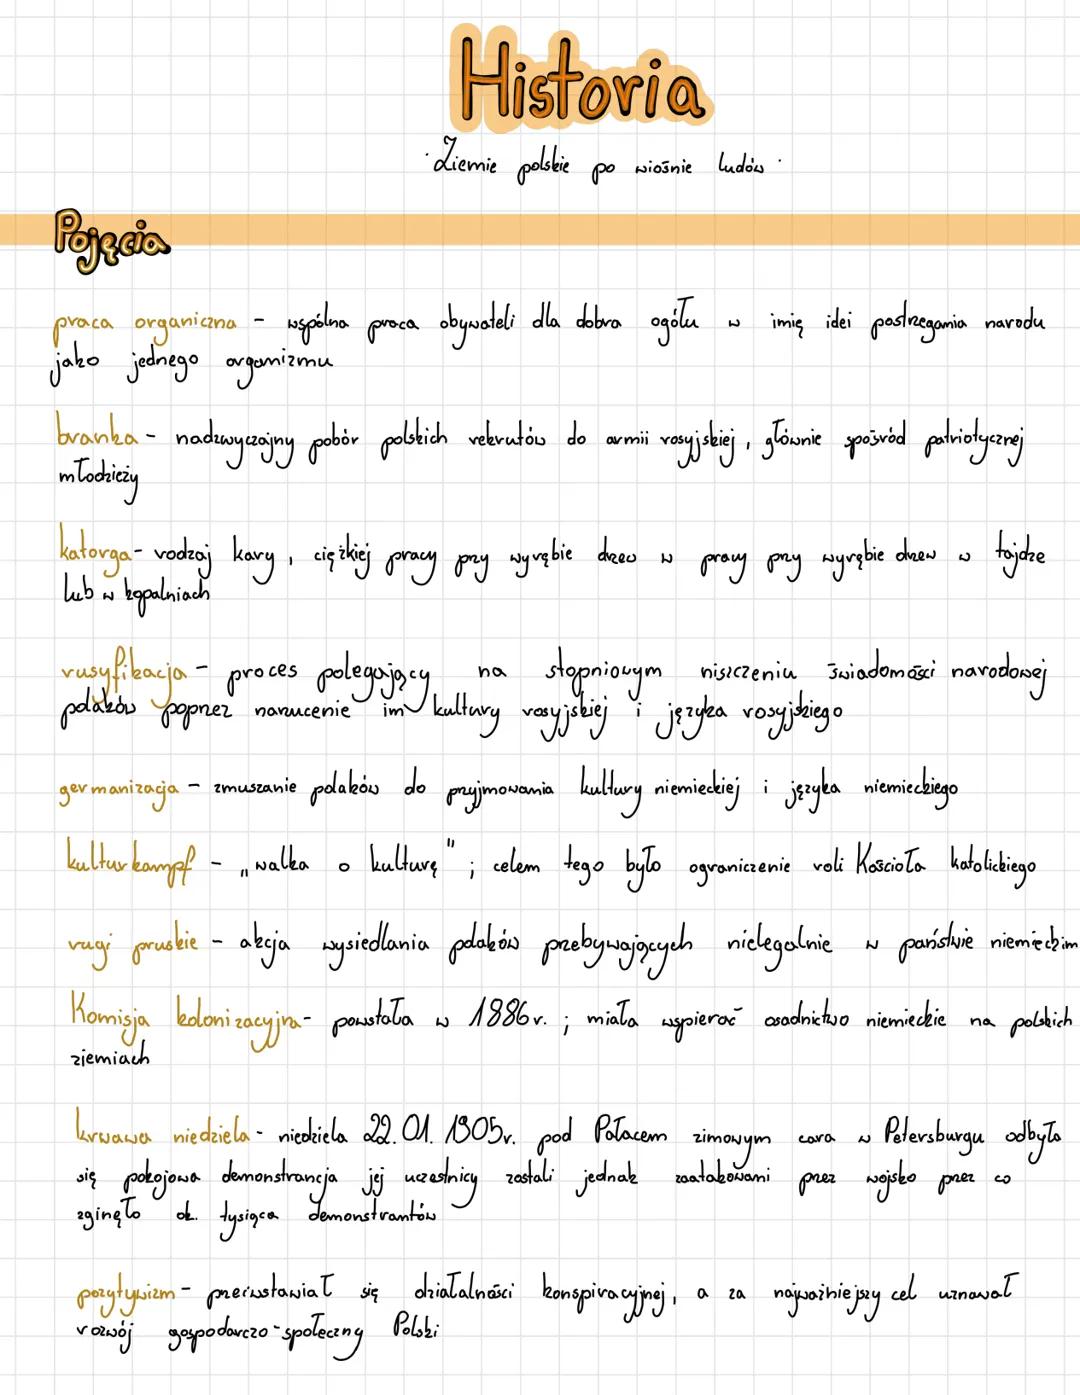 Historia
· Ziemie polskie po wiośnie ludów ·
Pojęcia
praca organiczna - wspólna praca obywateli dla dobra ogółu w imię idei postrzegania narodu
jako jednego organizmu
branka - nadzwyczajny pobór polskich rekrutów do armii rosyjskiej, głównie spośród patriotycznej
młodzieży
katorga - rodzaj kary, ciężkiej pracy przy wyrębie drzew w pracy przy wyrębie drzew w tajdze
lub w kopalniach
rusyfikacja - proces polegający na stopniowym niszczeniu świadomości narodowej
polaków poprzez narzucenie im kultury rosyjskiej i języka rosyjskiego
germanizacja - zmuszanie polaków do przyjmowania kultury niemieckiej i języka niemieckiego
kulturkampf - „walka o kulturę"; celem tego było ograniczenie roli Kościoła katolickiego
rugi pruskie - akcja wysiedlania polaków przebywających nielegalnie w państwie niemieckim
Komisja kolonizacyjna - powstała w 1886r.; miała wspierać osadnictwo niemieckie na polskich
ziemiach
krwawa niedziela - niedziela 22.01.1905r. pod Pałacem zimowym cara w Petersburgu odbyła
się pokojowa demonstrancja jej uczestnicy zostali jednak zaatakowani przez wojsko przez co
zginęło ok. tysiąca demonstrantów
pozytywizm - przeciwstawiał się działalności konspiracyjnej, a za najważniejszy cel uznawał
rozwój gospodarczo-społeczny Polski